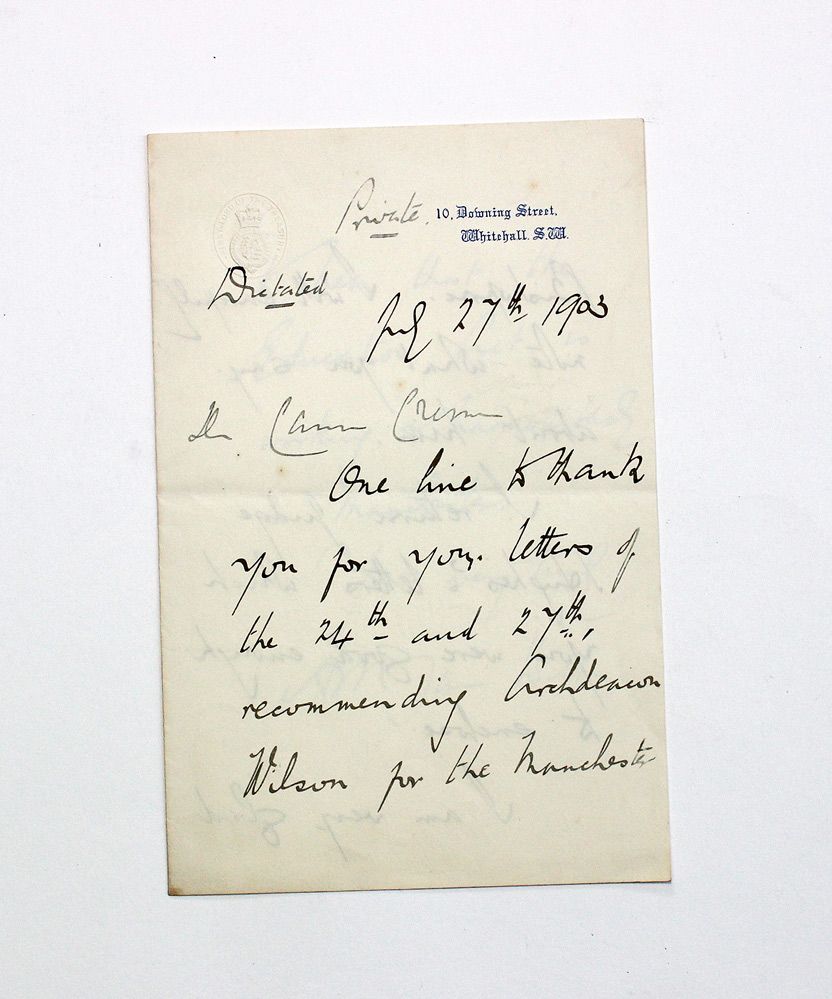 Private.
10, Downing Street,
Whitehall. S.W.
Dictated
July 27th 1903
One line to thank
you for your letters of
the 24th and 27th,
recommending Archdeacon
Wilson for the Manchester